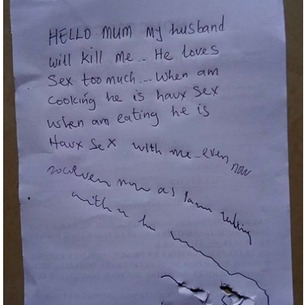 HELLO MUM my husband
will kill me.. He loves
sex too much... when am
cooking he is havx sex
when am eating he is
Havx sex with me even now
even now as I am
with u he